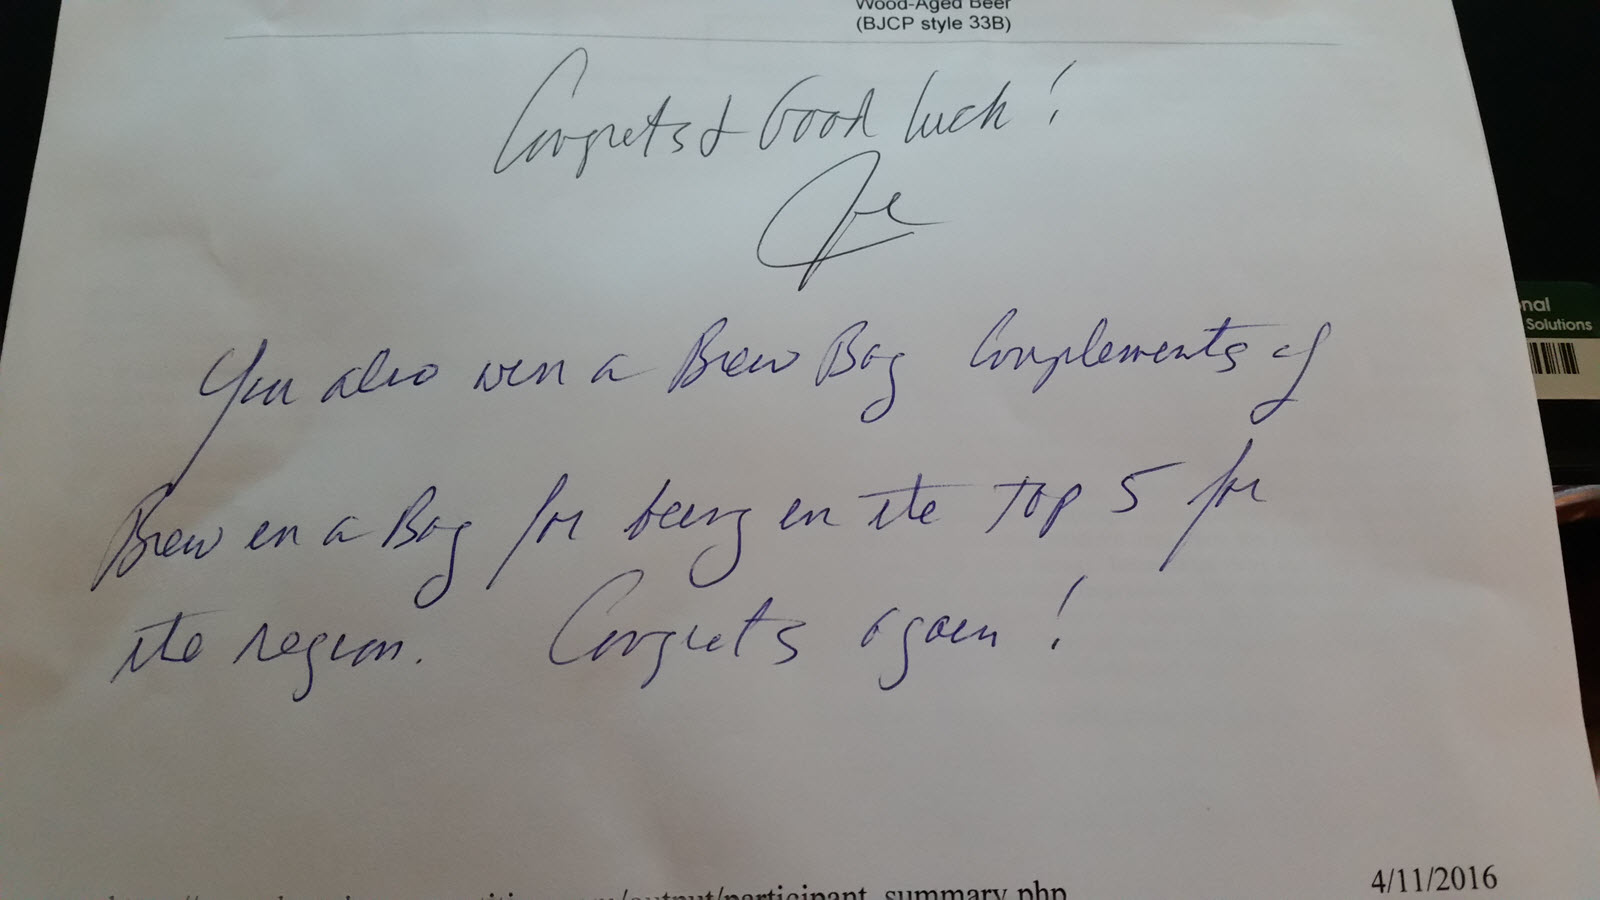 Wood-Aged Beer
(BJCP style 33B)
Congrats & Good luck!
Joe
You also win a Brew Bag Complements of
Brew in a Bag for being in the top 5 for
the region. Congrats again!
nal
Solutions
4/11/2016
/output/participant_summary.php